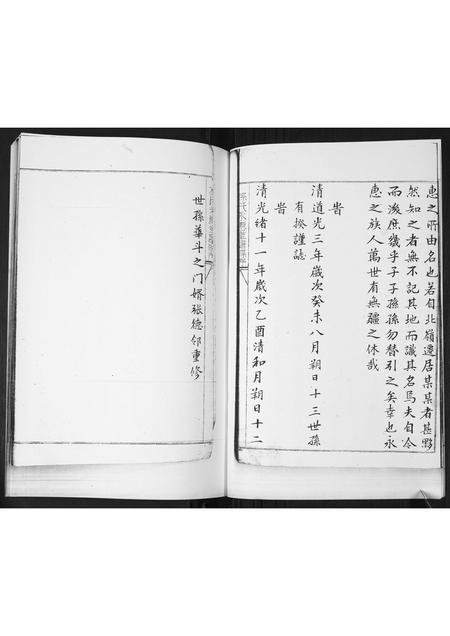 惠之所由名也若自北嶺遷居某某者甚夥
然知之者無不記其地而識其名焉夫自今
而後庶幾乎子子孫孫勿替引之矣幸也永
惠之族人萬世有無疆之休哉
旹
清道光三年歲次癸未八月朔日十三世孫
有揆謹誌
旹
清光緒十一年歲次乙酉清和月朔日十二
世孫華斗之门婿張德邻重修